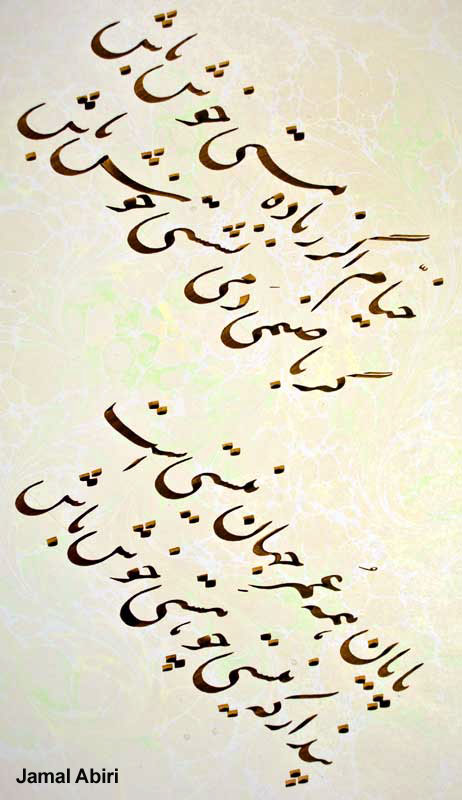 خیام اگر ز باده مستی خوش باش
گر با صنمی دمی نشستی خوش باش
پایان همه عمر جهان نیستی است
پندار که نیستی چو هستی خوش باش
Jamal Abiri